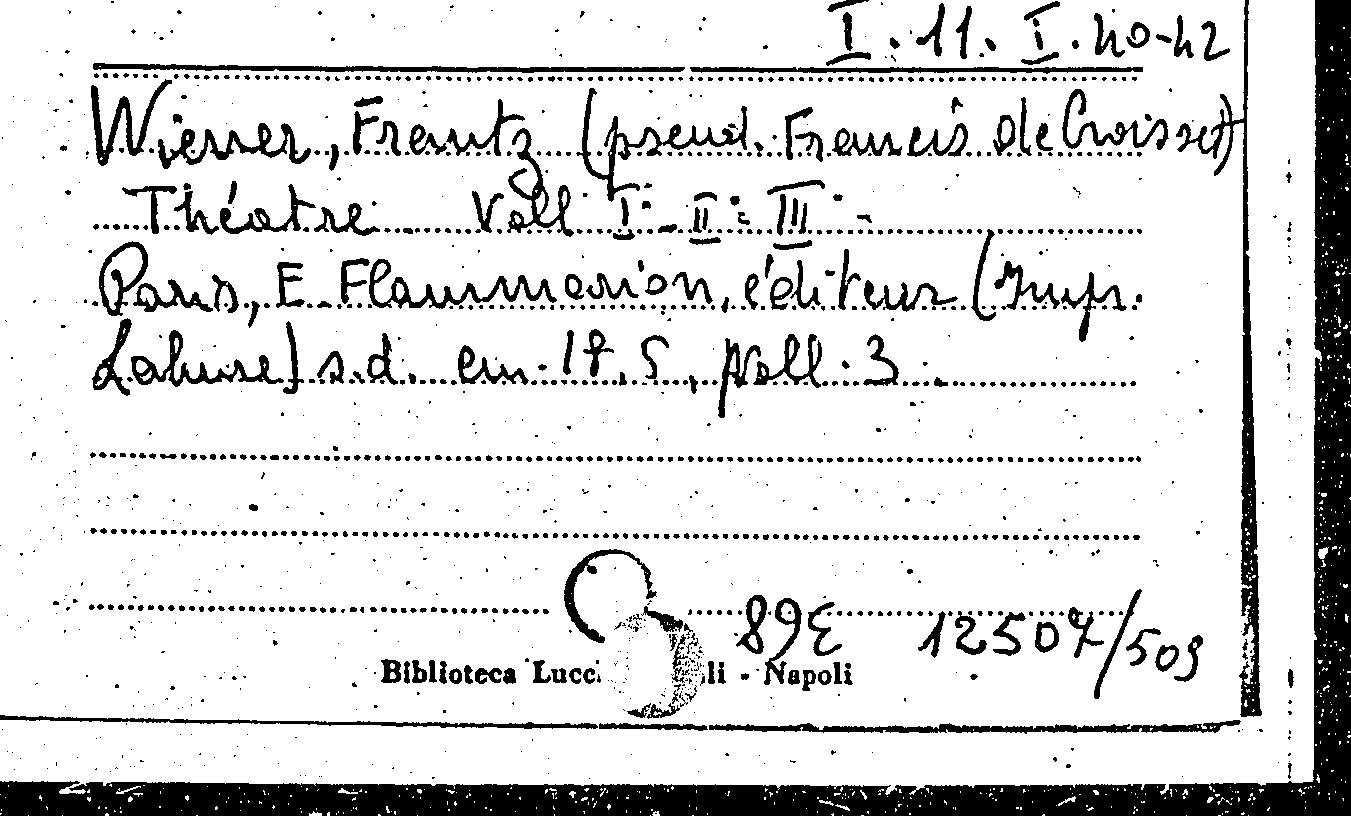 I. 11. I. 40-42
Wiener, Frantz (pseud. Francis de Croisset)
Théatre Voll I°-II°-III°-
Paris, E. Flammarion, éditeur (Imp.
Lahure) s.d. cm. 18,5, voll. 3.
89E 12507/509
Biblioteca Lucc li - Napoli